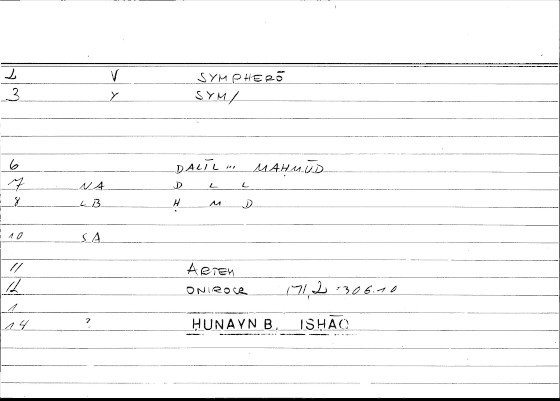 2 V SYMPHERŌ
3 Y SYM/
6 DALĪL ... MAḤMŪD
7 NA D L L
8 LB Ḥ M D
10 SA
11 ARTEM
12 ONIROCR 171,2 : 306.10
1
14 ? ḤUNAYN B. ISḤĀQ